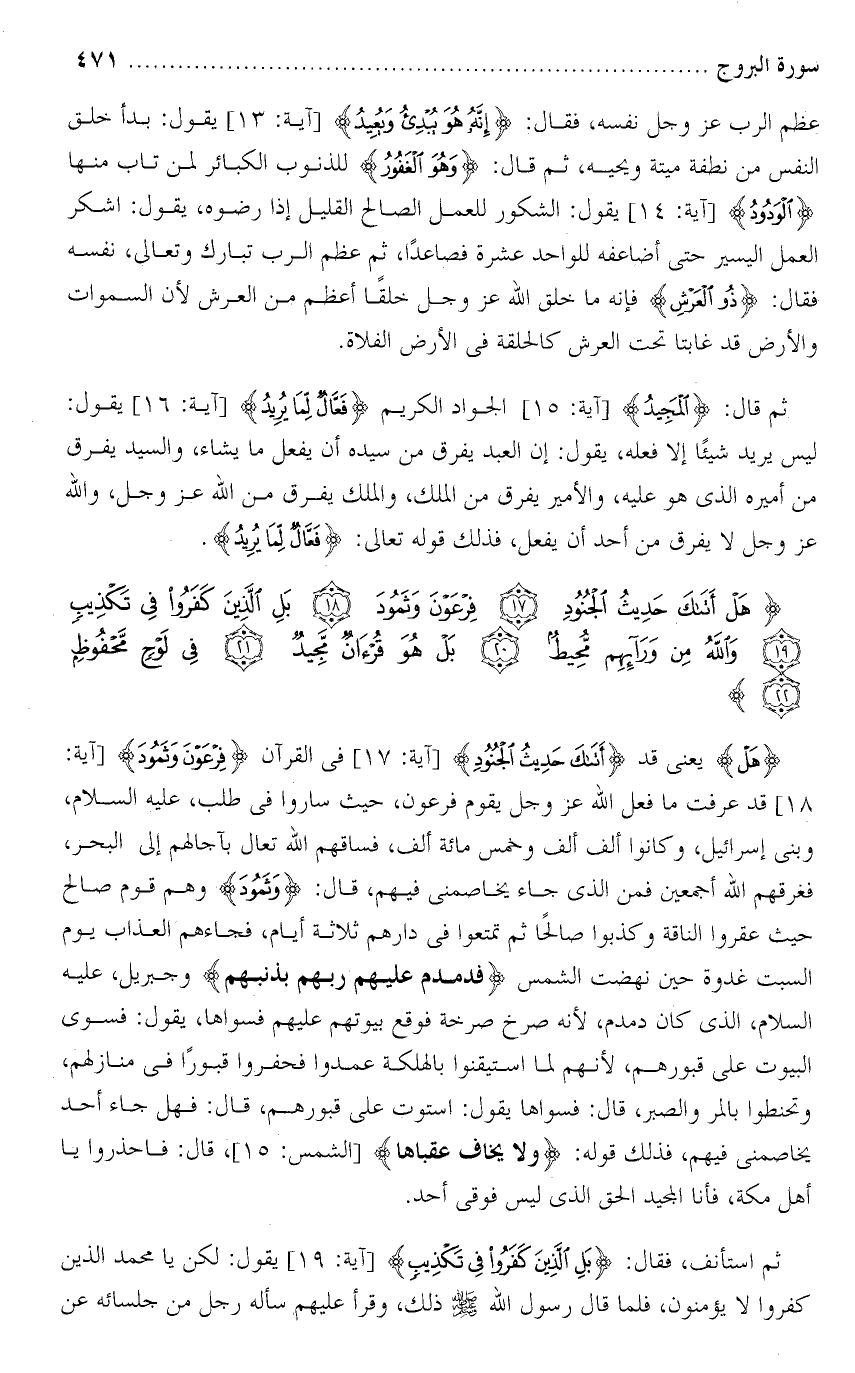 سورة البروج ........................................................................ ٤٧١
عظم الرب عز وجل نفسه، فقال: ﴿إِنَّهُ هُوَ يُبْدِئُ وَيُعِيدُ﴾ [آية: ١٣] يقول: بدأ خلق
النفس من نطفة ميتة ويحييه، ثم قال: ﴿وَهُوَ ٱلْغَفُورُ﴾ للذنوب الكبائر لمن تاب منها
﴿ٱلْوَدُودُ﴾ [آية: ١٤] يقول: الشكور للعمل الصالح القليل إذا رضوه، يقول: اشكر
العمل اليسير حتى أضاعفه للواحد عشرة فصاعدًا، ثم عظم الرب تبارك وتعالى، نفسه
فقال: ﴿ذُو ٱلْعَرْشِ﴾ فإنه ما خلق الله عز وجل خلقًا أعظم من العرش لأن السموات
والأرض قد غابتا تحت العرش كالحلقة فى الأرض الفلاة.
ثم قال: ﴿ٱلْمَجِيدُ﴾ [آية: ١٥] الجواد الكريم ﴿فَعَّالٌ لِّمَا يُرِيدُ﴾ [آية: ١٦] يقول:
ليس يريد شيئًا إلا فعله، يقول: إن العبد يفرق من سيده أن يفعل ما يشاء، والسيد يفرق
من أميره الذى هو عليه، والأمير يفرق من الملك، والملك يفرق من الله عز وجل، والله
عز وجل لا يفرق من أحد أن يفعل، فذلك قوله تعالى: ﴿فَعَّالٌ لِّمَا يُرِيدُ﴾.
﴿ هَلْ أَتَىٰكَ حَدِيثُ ٱلْجُنُودِ ١٧ فِرْعَوْنَ وَثَمُودَ ١٨ بَلِ ٱلَّذِينَ كَفَرُوا۟ فِى تَكْذِيبٍ
١٩ وَٱللَّهُ مِن وَرَآئِهِم مُّحِيطٌۢ ٢٠ بَلْ هُوَ قُرْءَانٌ مَّجِيدٌ ٢١ فِى لَوْحٍ مَّحْفُوظٍۭ
٢٢ ﴾
﴿هَلْ﴾ يعنى قد ﴿أَتَىٰكَ حَدِيثُ ٱلْجُنُودِ﴾ [آية: ١٧] فى القرآن ﴿فِرْعَوْنَ وَثَمُودَ﴾ [آية:
١٨] قد عرفت ما فعل الله عز وجل يقوم فرعون، حيث ساروا فى طلب، عليه السلام،
وبنى إسرائيل، وكانوا ألف ألف وخمس مائة ألف، فساقهم الله تعال بآجالهم إلى البحر،
فغرقهم الله أجمعين فمن الذى جاء يخاصمنى فيهم، قال: ﴿وَثَمُودَ﴾ وهم قوم صالح
حيث عقروا الناقة وكذبوا صالحًا ثم تمتعوا فى دارهم ثلاثة أيام، فجاءهم العذاب يوم
السبت غدوة حين نهضت الشمس ﴿فدمدم عليهم ربهم بذنبهم﴾ وجبريل، عليه
السلام، الذى كان دمدم، لأنه صرخ صرحة فوقع بيوتهم عليهم فسواها، يقول: فسوى
البيوت على قبورهم، لأنهم لما استيقنوا بالهلكة عمدوا فحفروا قبورًا فى منازلهم،
وتحنطوا بالمر والصبر، قال: فسواها يقول: استوت على قبورهم، قال: فهل جاء أحد
يخاصمنى فيهم، فذلك قوله: ﴿ولا يخاف عقباها﴾ [الشمس: ١٥]، قال: فاحذروا يا
أهل مكة، فأنا المجيد الحق الذى ليس فوقى أحد.
ثم استأنف، فقال: ﴿بَلِ ٱلَّذِينَ كَفَرُوا۟ فِى تَكْذِيبٍ﴾ [آية: ١٩] يقول: لكن يا محمد الذين
كفروا لا يؤمنون، فلما قال رسول الله ﷺ ذلك، وقرأ عليهم سأله رجل من جلسائه عن